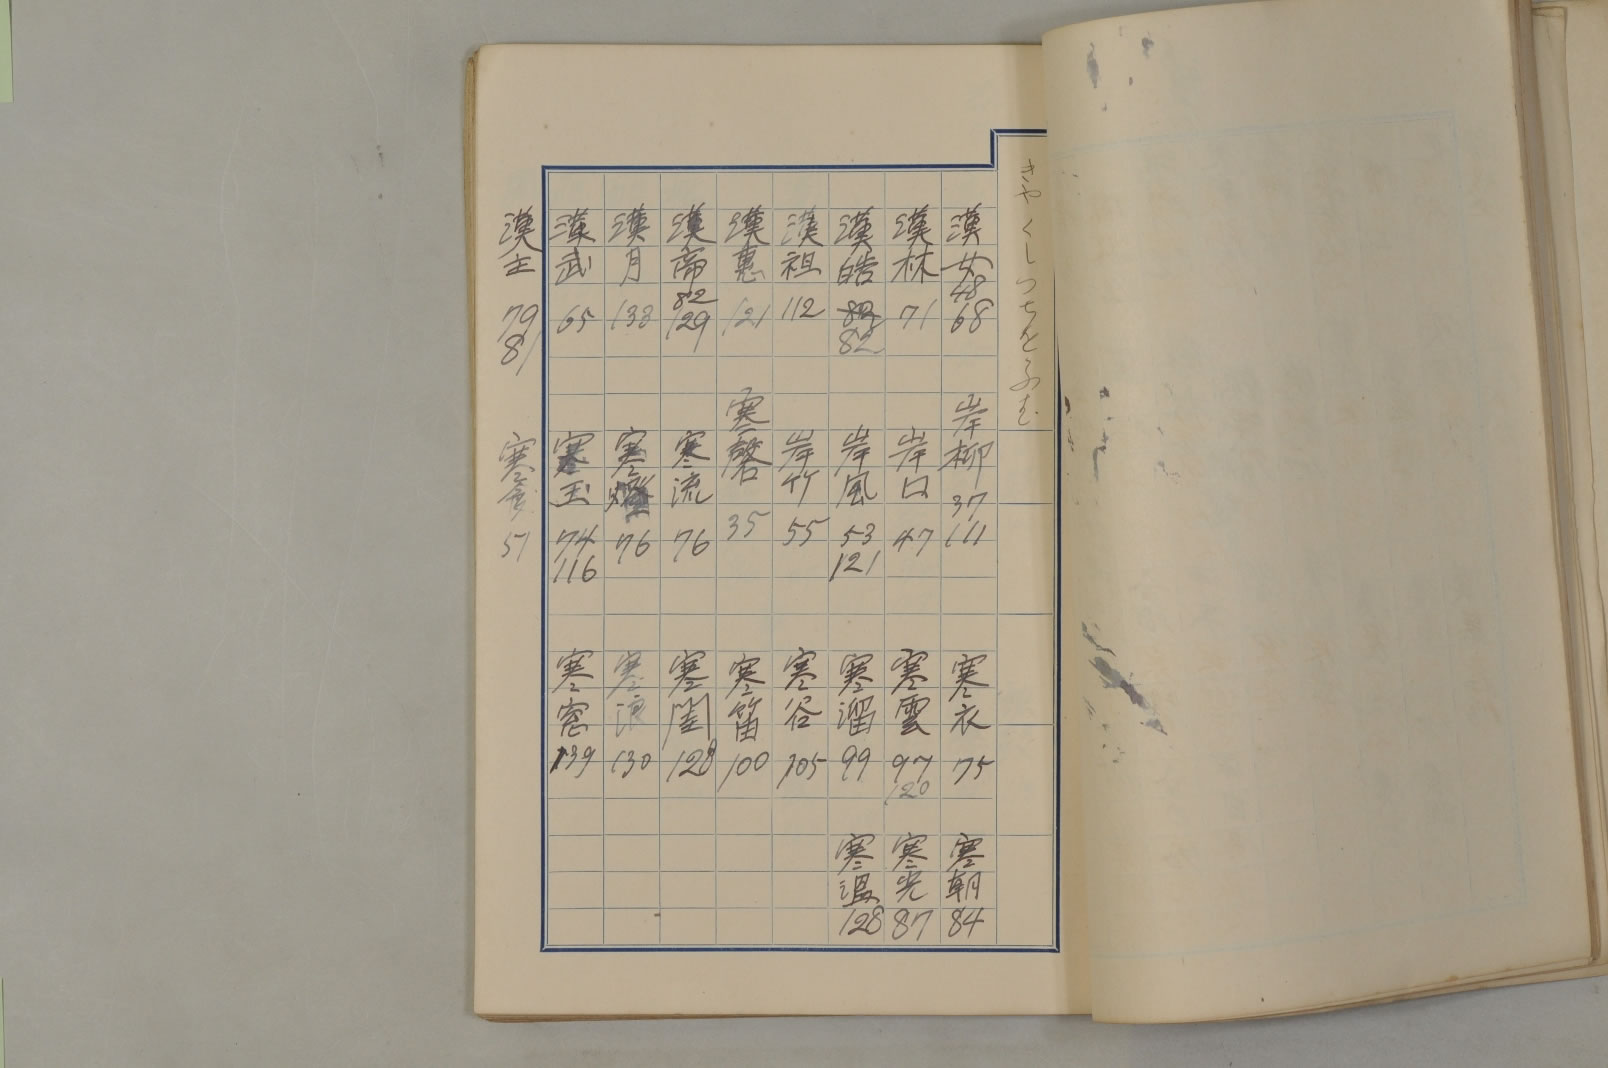 きやくしつちをふむ
漢女 48 68
漢林 71
漢皓 82
漢祖 112
漢恵 121
漢帝 82 129
漢月 138
漢武 65
漢主 79 81
岸柳 37 111
岸口 47
岸風 53 121
岸竹 55
寒磬 35
寒流 76
寒燈 76
寒玉 74 116
寒食 51
寒衣 75
寒雲 97 120
寒溜 99
寒谷 105
寒笛 100
寒閨 128
寒浪 130
寒窓 139
寒朝 84
寒光 87
寒温 128